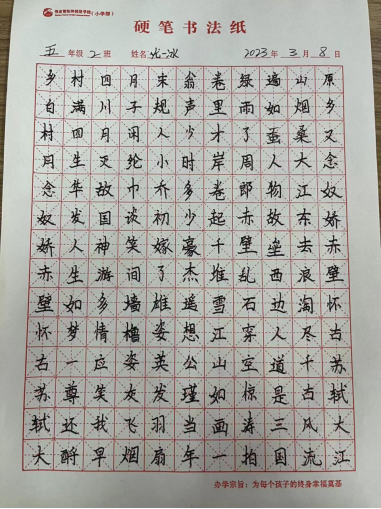 硬笔书法纸
五年级2班 姓名 2023年3月8日
乡村四月宋翁卷绿遍山原
白满川子规声里雨如烟乡
村四月闲人少才了蚕桑又
月生灭纶小时岸周人大念
念华故巾乔多卷郎物江奴
奴发国谈初少起赤故东娇
娇人神笑嫁豪千壁垒去赤
赤生游间了杰堆乱西浪壁
壁如多墙雄遥雪石边淘怀
怀梦情橹姿想江穿人尽古
古一应姿英公山空道千苏
苏尊笑灰发瑾如惊是古轼
轼还我飞羽当画涛三风大
大酹早烟扇年一拍国流江
办学宗旨：为每个孩子的终身幸福奠基